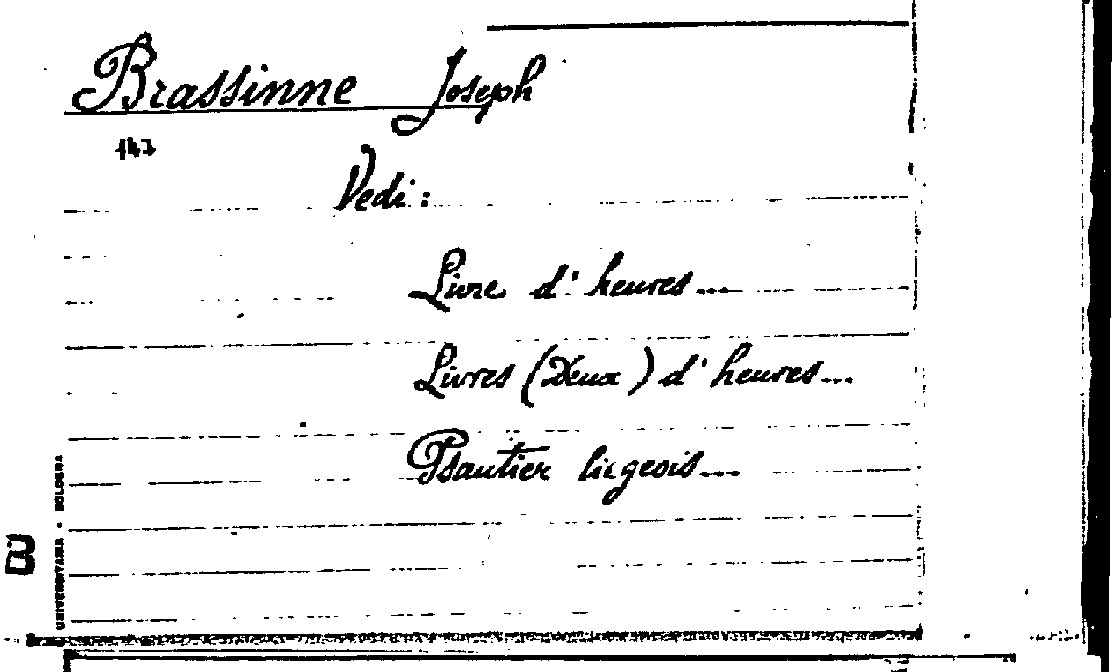 Brassinne Joseph
147
Vedi:
Livre d'heures...
Livres (Deux) d'heures...
Psautier liégeois...
B
UNIVERSITARIA • BOLOGNA